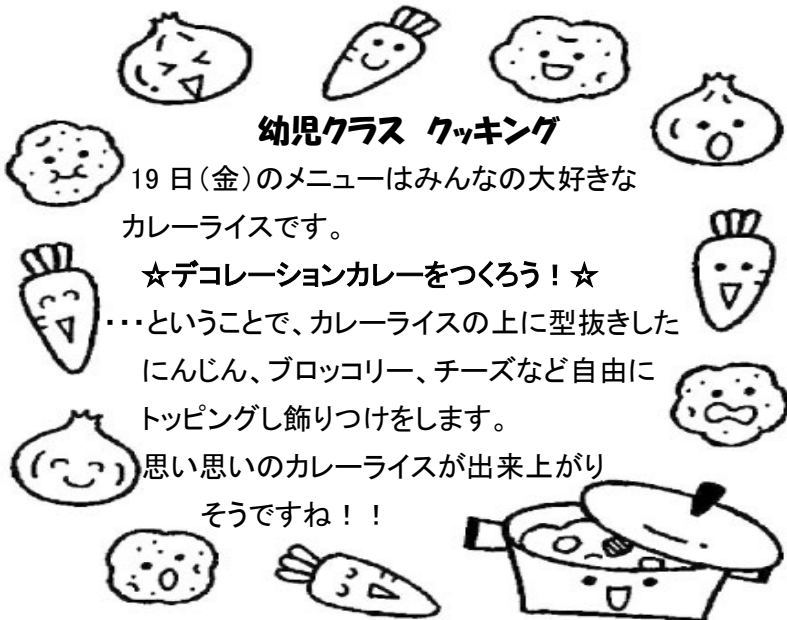 幼児クラス クッキング
19日(金)のメニューはみんなの大好きな
カレーライスです。
☆デコレーションカレーをつくろう！☆
・・・ということで、カレーライスの上に型抜きした
にんじん、ブロッコリー、チーズなど自由に
トッピングし飾りつけをします。
思い思いのカレーライスが出来上がり
そうですね！！